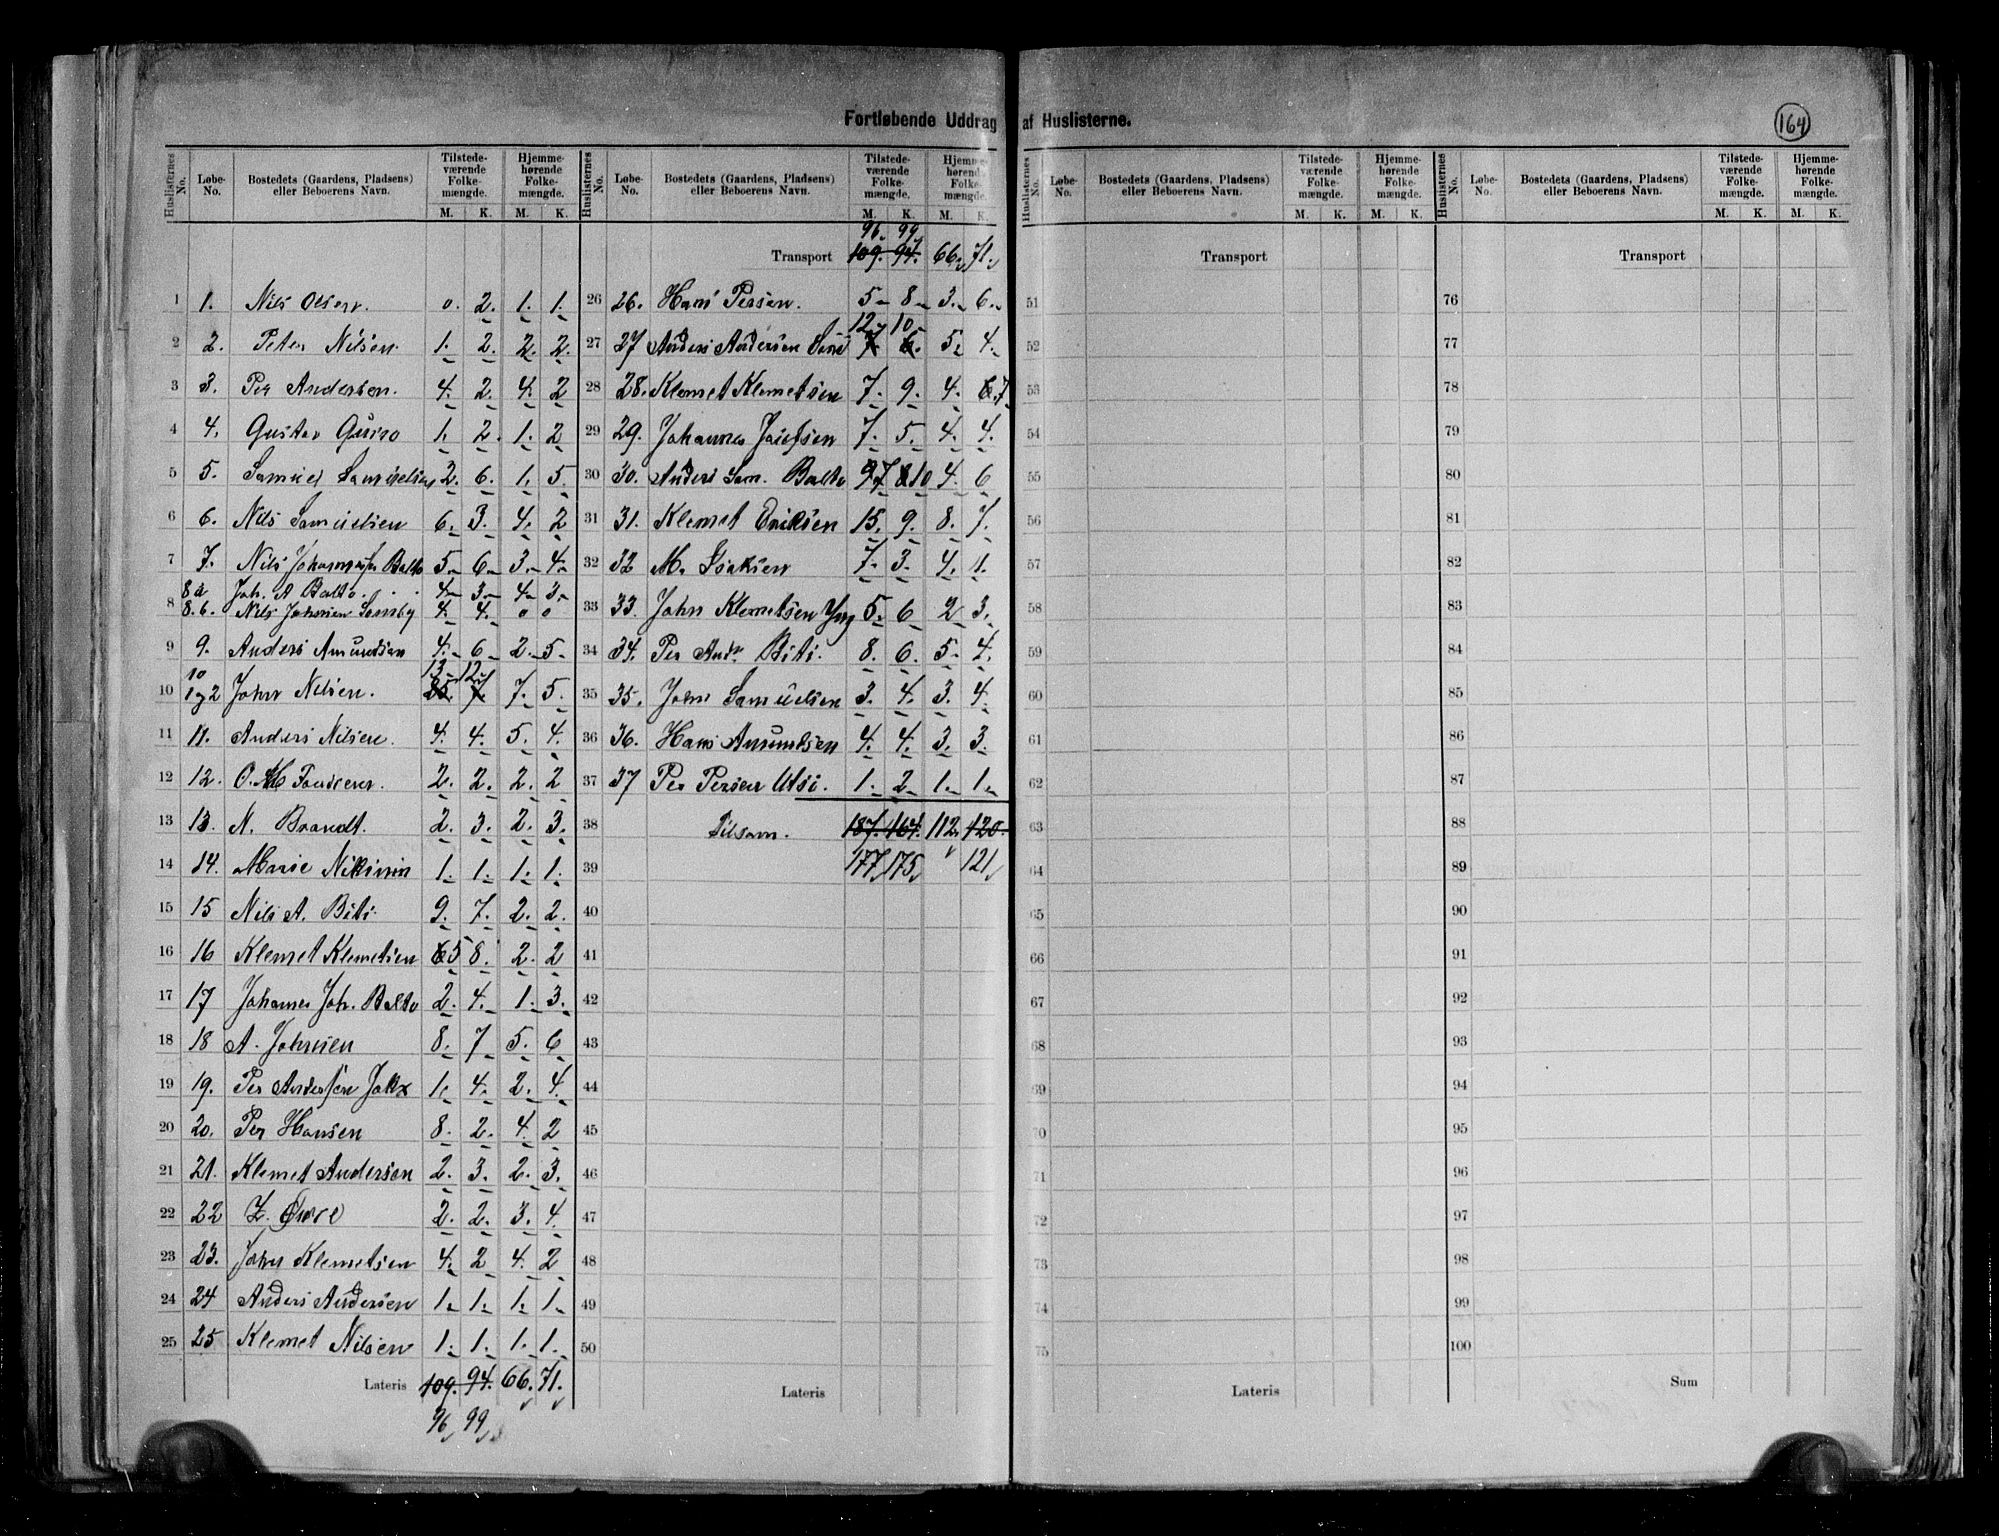 Fortløbende Uddrag af Huslisterne.
164
Huslisternes No. Løbe-No. Bostedets (Gaardens, Pladsens) eller Beboerens Navn. Tilstede-værende Folke-mængde. M. K. Hjemme-hørende Folke-mængde. M. K.
1 1. Nils Olsen. 0. 2. 1. 1.
2 2. Peter Nilsen. 1. 2. 2. 2.
3 3. Per Andersen. 4. 2. 4. 2
4 4. Gustav 1. 2. 1. 2
5 5. Samuel Samuelsen 2. 6. 1. 5.
6 6. Nils Samuelsen 6. 3. 4. 2
7 7. Nils Balto 5. 6. 3. 4.
8 8 a Joh. A Balto. 4. 3. 4. 3.
8. b. Nils Johnsen Somby 4. 4. 0 0
9 9. Anders Amundsen 4. 6. 2. 5.
10 10 1 og 2 John Nilsen. 13. 12. 7. 5.
11 11. Anders Nilsen. 4. 4. 5. 4.
12 12. O. 2. 2. 2. 2
13 13. N. Brandt. 2. 3. 2. 3.
14 14. Marie 1. 1. 1. 1.
15 15 Nils A. Biti 9. 7. 2. 2.
16 16 Klemet Klemetsen 6 5 8. 2. 2
17 17 Johannes Joh. Balto 2. 4. 1. 3.
18 18 A. Johnsen 8. 7 5. 6
19 19. Per Andersen 1. 4. 2. 4.
20 20. Per Hansen 8. 2. 4. 2
21 21. Klemet Andersen 2. 3. 2. 3.
22 22 2. 2. 3. 4.
23 23. John Klemetsen 4. 2 4. 2
24 24 Anders Andersen 1. 1. 1. 1.
25 25 Klemet Nilsen 1. 1. 1. 1.
Lateris 109. 94. 66. 71.
96 99
Huslisternes No. Løbe-No. Bostedets (Gaardens, Pladsens) eller Beboerens Navn. Tilstede-værende Folke-mængde. M. K. Hjemme-hørende Folke-mængde. M. K.
96. 99
Transport 109. 94. 66. 71.
26 26. Hans Persen. 5 8 3. 6.
12. 10.
27 27 Anders Andersen 7 6. 5. 4.
28 28. Klemet Klemetsen 7. 9. 4. 6. 7
29 29. Johannes Josefsen 7. 5. 4. 4.
30 30. Anders Sam. Balto 9 7 8 10 4. 6
31 31. Klemet Eriksen 15. 9. 8. 7.
32 32 M. Isaksen 7. 3. 4. 1.
33 33. John Klemetsen Yng 5. 6 2 3.
34 34. Per And. Biti. 8. 6. 5. 4.
35 35. John Samuelsen 3. 4. 3. 4.
36 36. Hans Amundsen 4. 4. 3. 3.
37 37 Per Persen Utsi. 1. 2. 1. 1.
38 Tilsam. 187. 164. 112. 120.
39 177 175 121
40
41
42
43
44
45
46
47
48
49
50
Lateris
Huslisternes No. Løbe-No. Bostedets (Gaardens, Pladsens) eller Beboerens Navn. Tilstede-værende Folke-mængde. M. K. Hjemme-hørende Folke-mængde. M. K.
Transport
51
52
53
54
55
56
57
58
59
60
61
62
63
64
65
66
67
68
69
70
71
72
73
74
75
Lateris
Huslisternes No. Løbe-No. Bostedets (Gaardens, Pladsens) eller Beboerens Navn. Tilstede-værende Folke-mængde. M. K. Hjemme-hørende Folke-mængde. M. K.
Transport
76
77
78
79
80
81
82
83
84
85
86
87
88
89
90
91
92
93
94
95
96
97
98
99
100
Sum